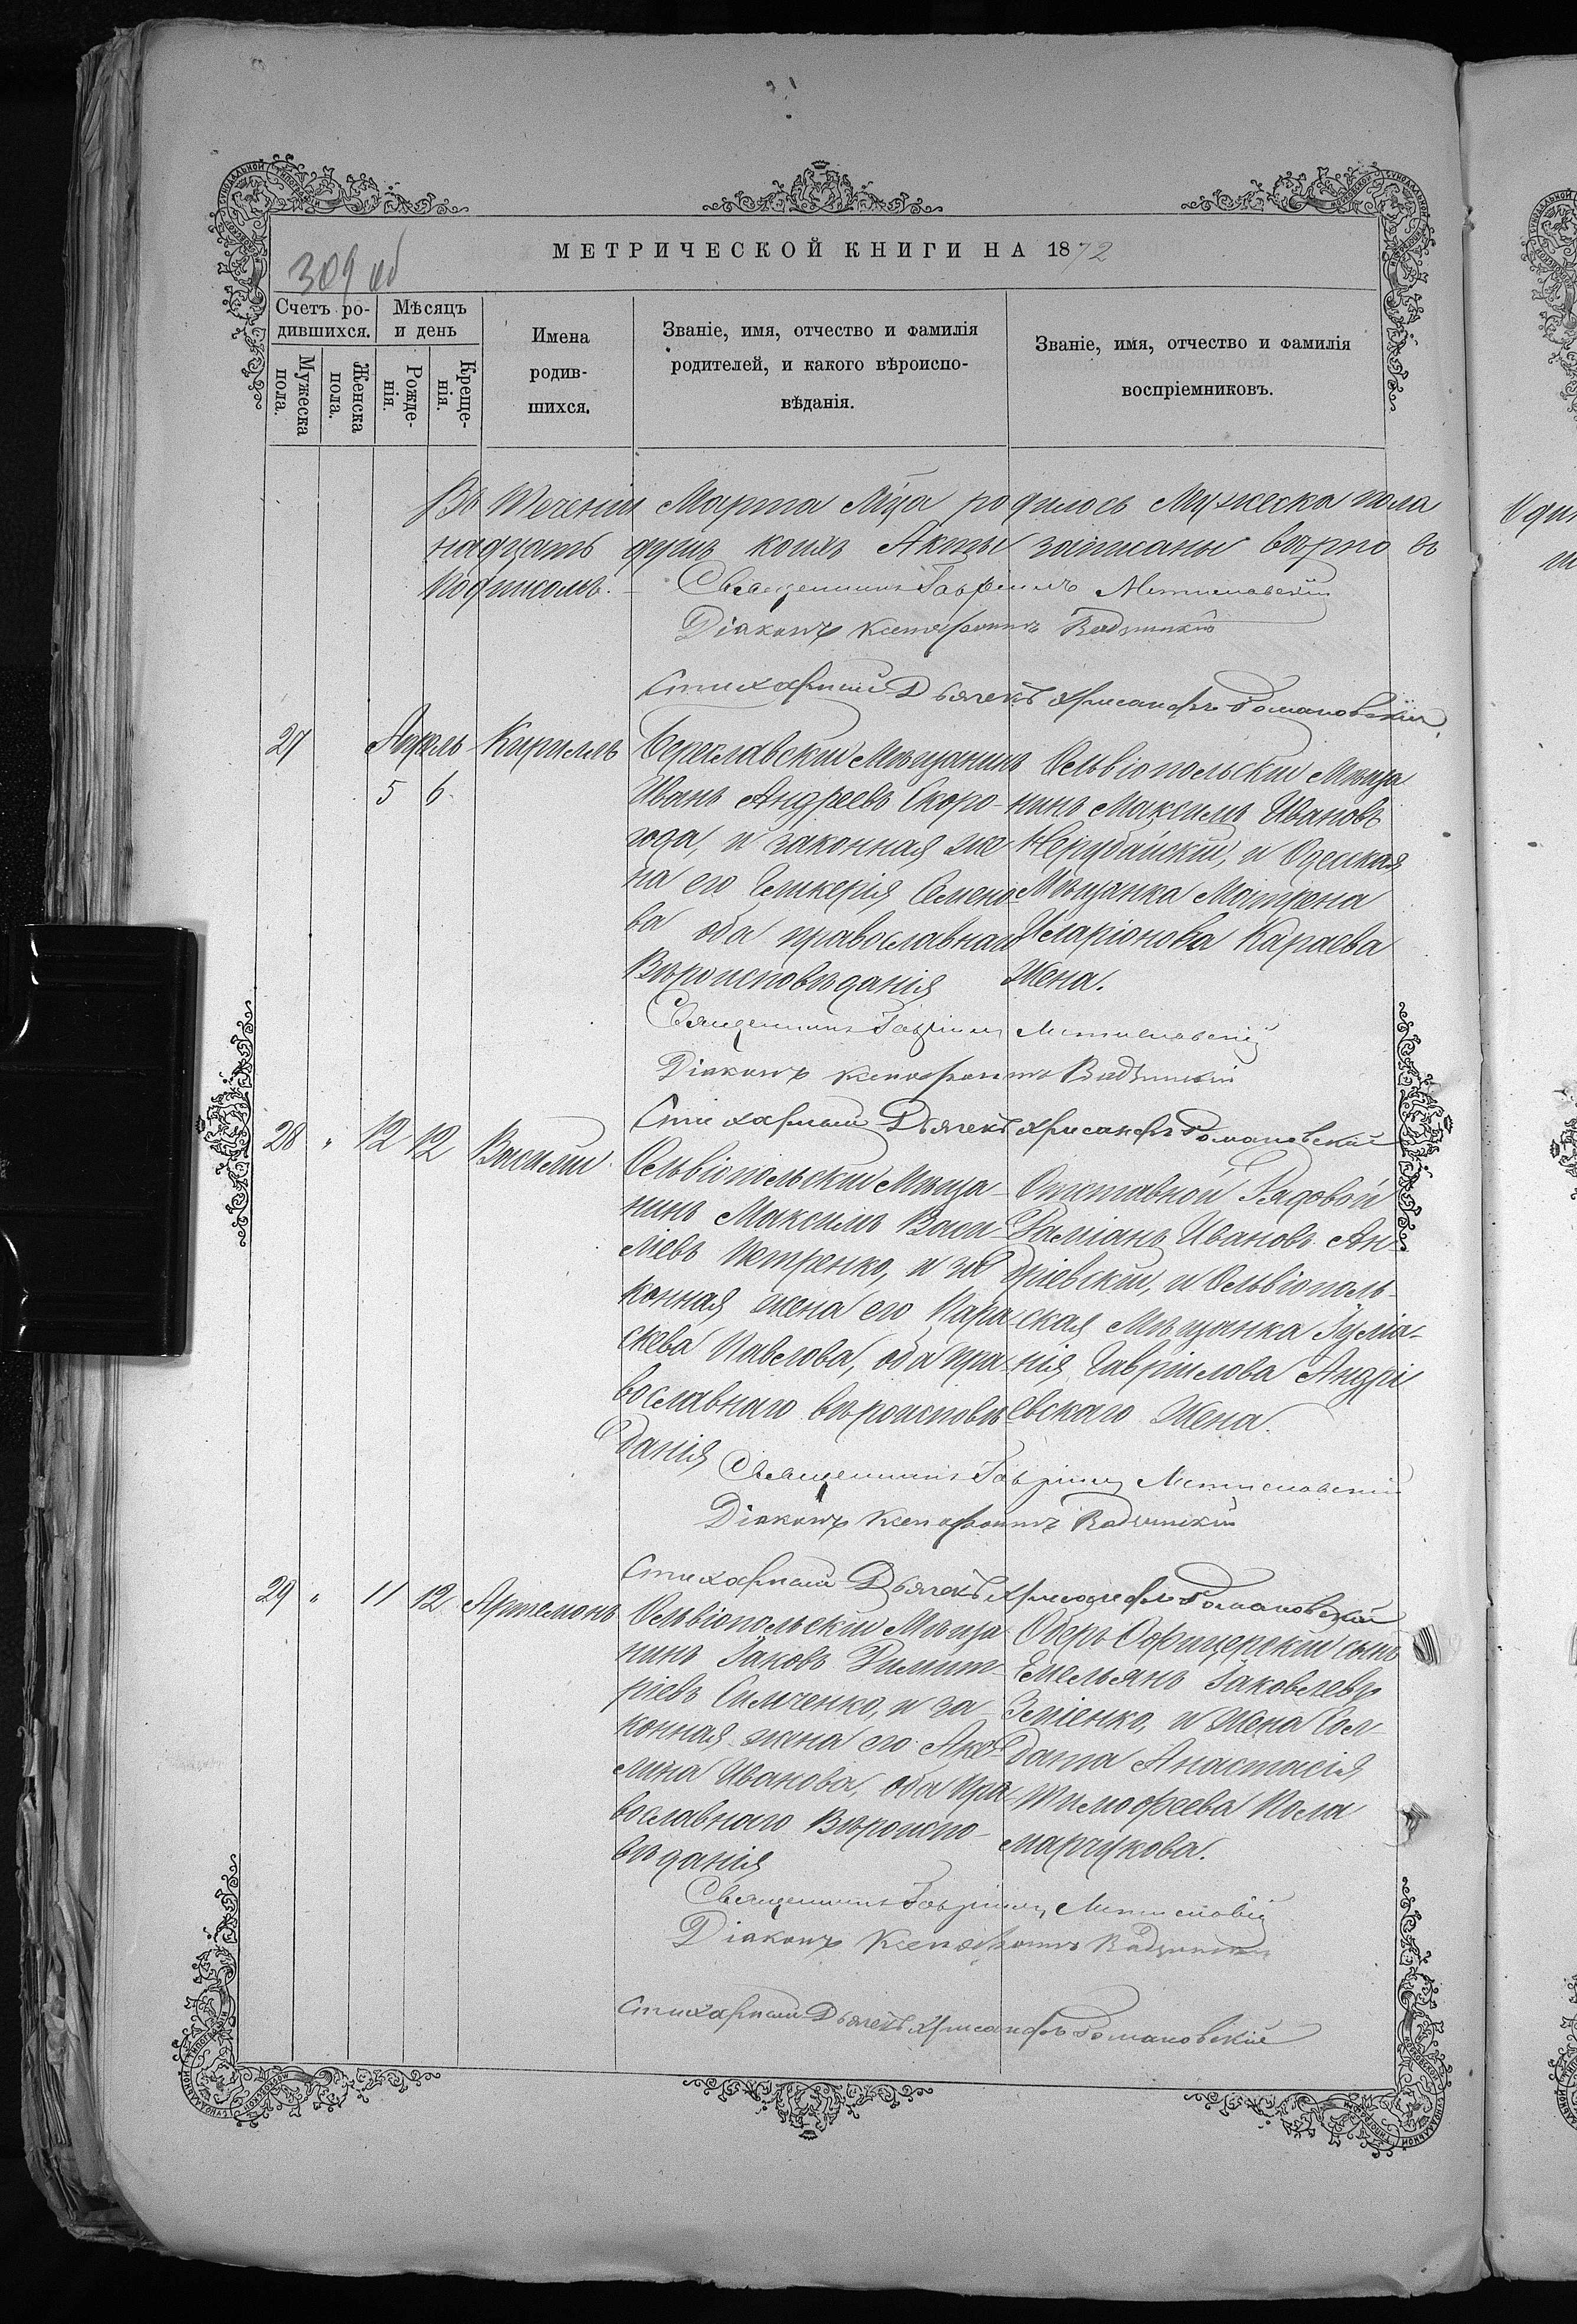 МЕТРИЧЕСКОЙ КНИГИ НА 1872
309 об
Счетъ ро-
дившихся.
Мужеска
пола.
Женска
пола.
Мѣсяцъ
и день
Рожде-
нія.
Креще-
нія.
Имена
родив-
шихся.
Званіе, имя, отчество и фамилія
родителей, и какого вѣроиспо-
вѣданія.
Званіе, имя, отчество и фамилія
воспріемниковъ.
Въ Теченіи Марта М-ца родилось Мужеска пола
надцать душъ коихъ Акты записаны вѣрно въ
подписомъ.
Священникъ Гавріилъ Мстиславскій
Діаконъ Ксенофонтъ
Стихарный Дьячекъ Хрисанфъ Романовскій
27
Апрѣль
5 6
Кириллъ
Береславскій Мѣщанинъ
Иванъ Андреевъ Скоро-
года, и законная же-
на его Гликерія Семено-
ва оба православнаго
Вѣроисповѣданія
Ольвіопольскій Мѣща
нинъ Максимъ Ивановъ
Нерубайскій, и Одесская
Мѣщанка Матрена
Иларіонова Караева
Жена.
Священникъ Гавріилъ Мстиславскій
Діаконъ Ксенофонтъ
Стихарный Дьячекъ Хрисанфъ Романовскій
28 " 12 12 Василій
Ольвіопольскій Мѣща-
нинъ Максимъ Васи-
ліевъ Петренко, и за
конная жена его Пара-
скева Павлова, оба пра-
вославнаго вѣроисповѣ
данія
Отставной Рядовой
Даміанъ Ивановъ Ан-
дріевскій, и Ольвіополь-
ская Мѣщанка Іуліа-
нія Гавріилова Андрі
евскаго Жена.
Священникъ Гавріилъ Мстиславскій
Діаконъ Ксенофонтъ
Стихарный Дьячекъ Хрисанфъ Романовскій
29 " 11 12 Артемонъ
Ольвіопольскій Мѣща
нинъ Іаковъ Димит-
ріевъ Симченко, и за-
конная жена его Аке-
лина Иванова, оба Пра-
вославнаго Вѣроиспо-
вѣданія
Оберъ Офицерскій сынъ
Емельянъ Іаковлевъ
Зеліенко, и Жена Сол-
дата Анастасія
Тимофеева Пола
марчукова.
Священникъ Гавріилъ Мстиславскій
Діаконъ Ксенофонтъ
Стихарный Дьячекъ Хрисанфъ Романовскій